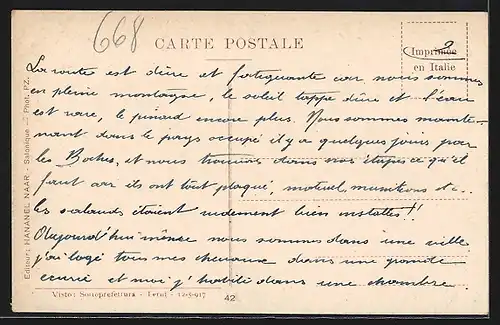 668
CARTE POSTALE
Imprimée
en Italie
2
La route est dure et fatiguante car nous sommes
en pleine montagne, le soleil tappe dûre et l'eau
est rare, le pinard encore plus. Nous sommes mainte-
nant dans le pays occupé il y a quelques jours par
les Boches, et nous trouvons dans nos étapes ce qu'il
faut car ils ont tout plaqué, matériel munitions etc..
les salauds étaient rudement bien installés!!
Aujourd'hui même nous sommes dans une ville
j'ai logé tous mes chevaux dans une grande
écurie et moi j'habite dans une chambre.
Editeur: HANANEL NAAR - Salonique - Phot. PZ.
Visto: Sottoprefettura - Terni - 12-5-917
42